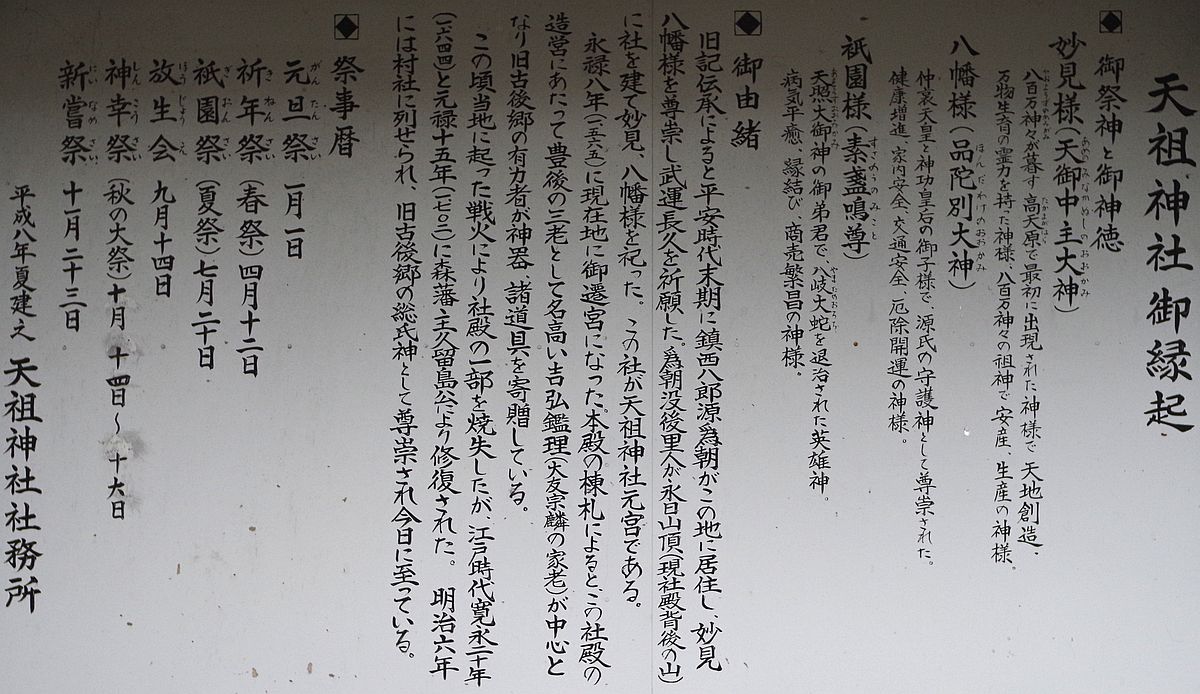 天祖神社御縁起
◆ 御祭神と御神徳
妙見様(天御中主大神)
八百万神々が暮す高天原で最初に出現された神様で天地創造、
万物生育の霊力を持った神様、八百万神々の祖神で安産、生産の神様。
八幡様(品陀別大神)
仲哀天皇と神功皇后の御子様で源氏の守護神として尊崇された。
健康増進、家内安全、交通安全、厄除開運の神様。
祇園様(素盞鳴尊)
天照大御神の御弟君で、八岐大蛇を退治された英雄神。
病気平癒、縁結び、商売繁昌の神様。
◆ 御由緒
旧記伝承によると平安時代末期に鎮西八郎源為朝がこの地に居住し、妙見
八幡様を尊崇し武運長久を祈願した、為朝没後里人が永日山頂(現社殿背後の山)
に社を建て妙見、八幡様を祀った、この社が天祖神社元宮である。
永禄八年(一五六五)に現在地に御遷宮になった。本殿の棟札によると、この社殿の
造営にあたって豊後の三老として名高い吉弘鑑理(大友宗麟の家老)が中心と
なり旧古後郷の有力者が神器、諸道具を寄贈している。
この頃当地に起った戦火により社殿の一部を焼失したが、江戸時代寛永二十年
(一六四四)と元禄十五年(一七〇二)に森藩主久留島公により修復された。 明治六年
には村社に列せられ、旧古後郷の総氏神として尊崇され今日に至っている。
◆ 祭事暦
元旦祭 一月一日
祈年祭(春祭)四月十二日
祇園祭(夏祭)七月二十日
放生会 九月十四日
神幸祭(秋の大祭)十月 十四日〜十六日
新嘗祭 十一月二十三日
平成八年夏建之 天祖神社社務所